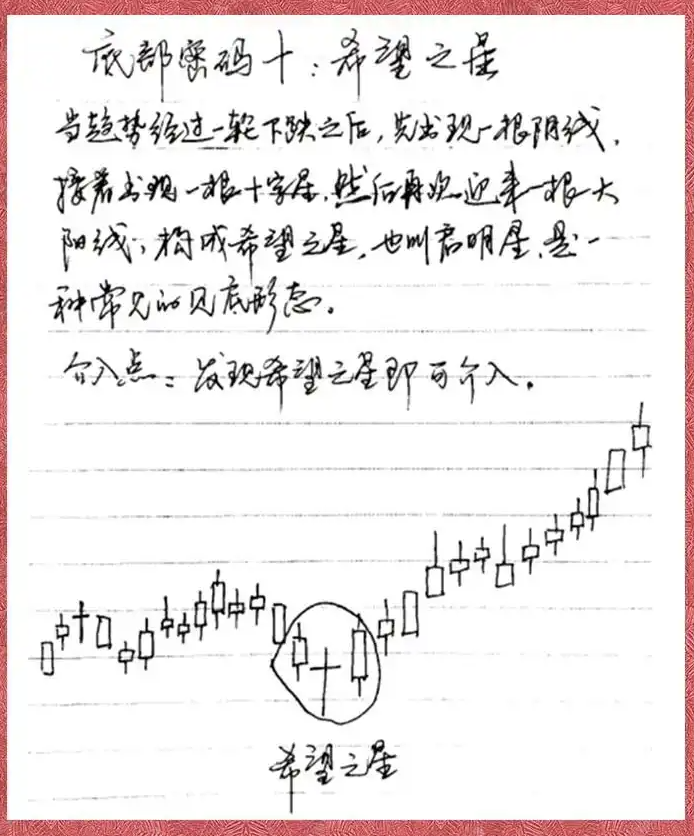 底部密码十：希望之星
当趋势经过一轮下跌之后，先出现一根阴线，
接着出现一根十字星，然后再次迎来一根大
阳线，构成希望之星，也叫启明星，是一
种常见的见底形态。
介入点：发现希望之星即可介入。
希望之星